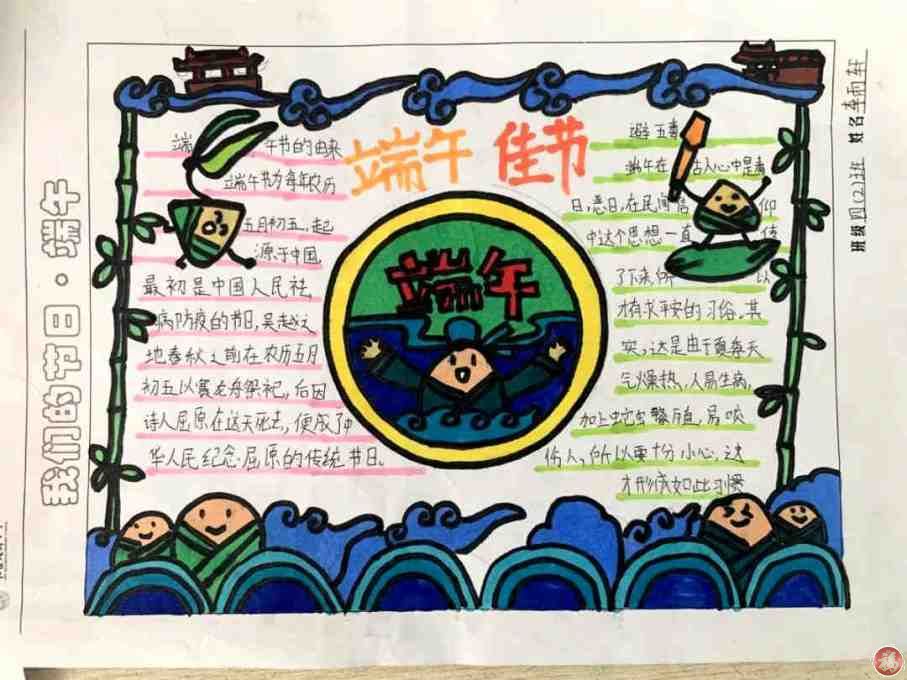 我们的节日·端午
班级 四(2)班 姓名 李雨轩
端午 佳节
端午
端午节的由来
端午节为每年农历
五月初五，起
源于中国，
最初是中国人民祛
病防疫的节日，吴越之
地春秋之前在农历五月
初五以赛龙舟祭祀，后因
诗人屈原在这天死去，便成了中
华人民纪念屈原的传统节日。
避五毒
端午在 古人心中是毒
日，恶日，在民间信 仰
中这个思想一直 传
了下来，所 以
才有求平安的习俗，其
实，这是由于夏季天
气燥热，人易生病，
加上蛇虫繁殖，易咬
伤人，所以要十分小心，这
才形成如此习惯
福